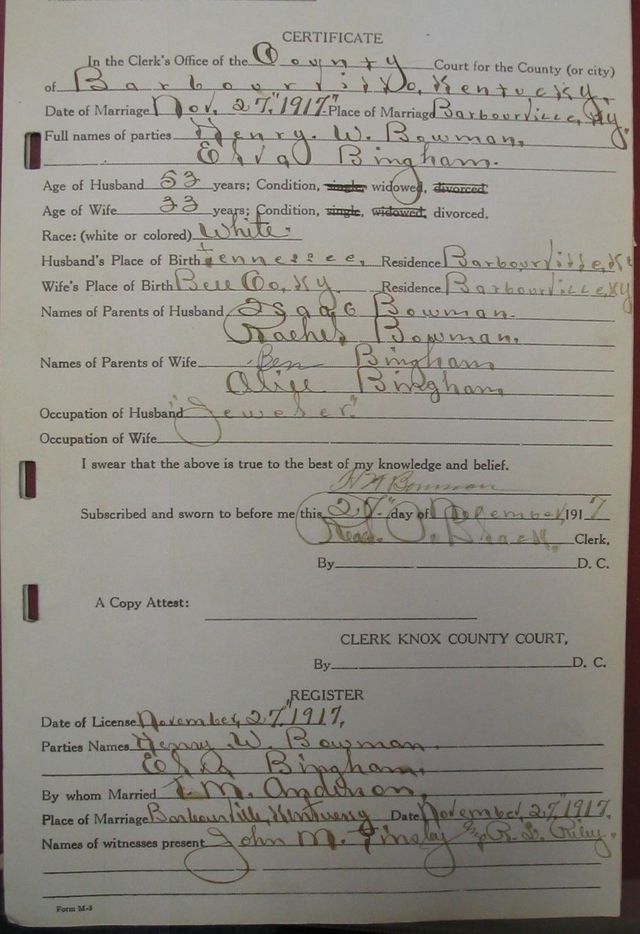 CERTIFICATE
In the Clerk's Office of the County Court for the County (or city)
of Barbourville, Kentucky.
Date of Marriage Nov. 27," 1917." Place of Marriage Barbourville, Ky.
Full names of parties Henry. W. Bowman,
Elva Bingham.
Age of Husband 53 years; Condition, single, widowed, divorced
Age of Wife 33 years; Condition, single, widowed, divorced.
Race: (white or colored) White.
Husband's Place of Birth Tennessee, Residence Barbourville, Ky
Wife's Place of Birth Bell Co, Ky. Residence Barbourville, Ky
Names of Parents of Husband Isaac Bowman.
Rachel Bowman,
Names of Parents of Wife Ben Bingham,
Alice Bingham,
Occupation of Husband "Jeweler."
Occupation of Wife
I swear that the above is true to the best of my knowledge and belief.
H W Bowman
Subscribed and sworn to before me this 27," day of November, 1917
Read. Black. Clerk,
By D. C.
A Copy Attest:
CLERK KNOX COUNTY COURT,
By D. C.
REGISTER
Date of License November, 27," 1917,
Parties Names Henry W. Bowman.
Elva Bingham,
By whom Married T. M. Anderson,
Place of Marriage Barbourville, Kentucky Date November, 27," 1917.
Names of witnesses present John M. Tinsley and R. L. Riley.
Form M-5